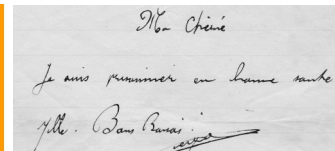 Ma Chérie
Je suis prisonnier en bonne sante
Bons Baisers